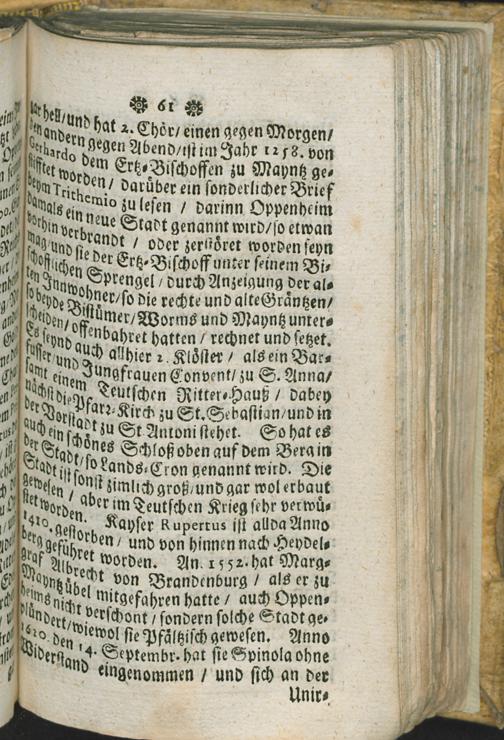 61
gar hell/und hat 2. Chör/ einen gegen Morgen/
den andern gegen Abend/ist im Jahr 1258. von
Gerhardo dem Ertz-Bischoffen zu Mayntz ge-
stifftet worden / darüber ein sonderlicher Brief
beym Trithemio zu lesen / darinn Oppenheim
damals ein neue Stadt genannt wird/so etwan
vorhin verbrandt / oder zerstöret worden seyn
mag/und sie der Ertz-Bischoff unter seinem Bi-
schofflichen Sprengel / durch Anzeigung der al-
ten Innwohner/so die rechte und alte Gräntzen/
so beyde Bistümer/Worms und Mayntz unter-
scheiden/ offenbahret hatten / rechnet und setzet.
Es seynd auch allhier 2. Klöster / als ein Bar-
fusser/und Jungfrauen Convent/ zu S. Anna/
samt einem Teutschen Ritter-Hauß / dabey
nächst die Pfarr-Kirch zu St. Sebastian/und in
der Vorstadt zu St. Antoni stehet. So hat es
auch ein schönes Schloß oben auf dem Berg in
der Stadt/so Lands-Cron genannt wird. Die
Stadt ist sonst zimlich groß/und gar wol erbaut
gewesen / aber im Teutschen Krieg sehr verwü-
stet worden. Kayser Rupertus ist allda Anno
1410. gestorben / und von hinnen nach Heydel-
berg geführet worden. An. 1552. hat Marg-
graf Albrecht von Brandenburg / als er zu
Mayntz übel mitgefahren hatte / auch Oppen-
heims nicht verschont / sondern solche Stadt ge-
plündert/wiewol sie Pfältzisch gewesen. Anno
1620. den 14. Septembr. hat sie Spinola ohne
Widerstand eingenommen / und sich an der
Unir-